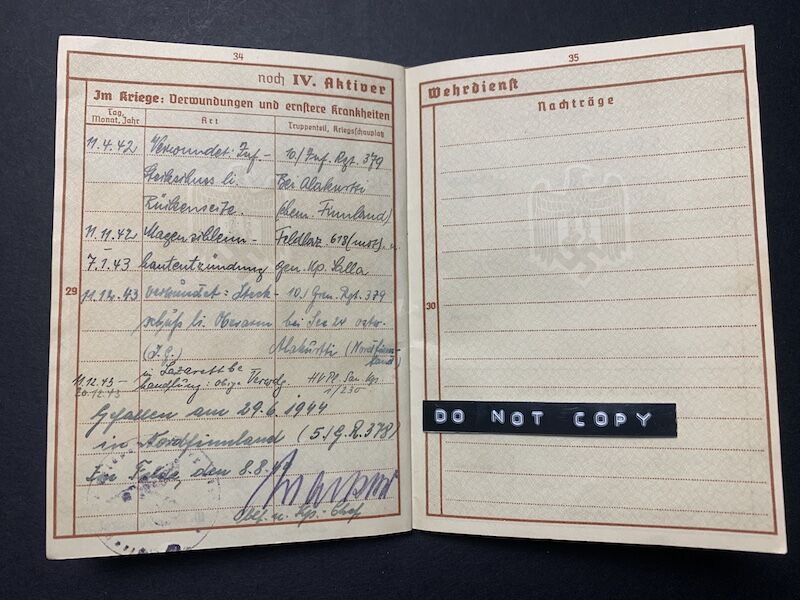 34
noch IV. Aktiver
Im Kriege: Verwundungen und ernstere Krankheiten
Tag, Monat, Jahr
Art
Truppenteil, Kriegsschauplatz
11.4.42 Verwundet: Inf.- 10./Inf. Rgt. 379
Steckschuss li. Bei Alakurtti
Rückenseite. (ehem. Finnland)
11.11.42 Magenschleim- Feldlaz. 618 (mot),
7.1.43 hautentzündung gen. Kp. Salla
29
11.12.43 verwundet: Steck- 10./Gren. Rgt. 379
schuß li. Oberarm bei See 24 ostw.
(J.G.) Alakurtti (Nordfinn-
land)
11.12.43 – in Lazarettbe
20.12.43 handlung: obige Verwdg. HVPl. San. Kp.
1/230
Gefallen am 29.6.1944
in Nordfinnland (5./G.R. 378)
Im Felde, den 8.8.44
Oblt. u. Kp.-Chef
35
Wehrdienst
Nachträge
30
DO NOT COPY